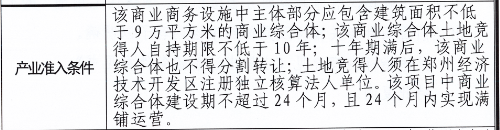 产业准入条件
该商业商务设施中主体部分应包含建筑面积不低
于9万平方米的商业综合体；该商业综合体土地竞
得人自持期限不低于10年；十年期满后，该商业
综合体也不得分割转让；土地竞得人须在郑州经济
技术开发区注册独立核算法人单位。该项目中商业
综合体建设期不超过24个月，且24个月内实现满
铺运营。